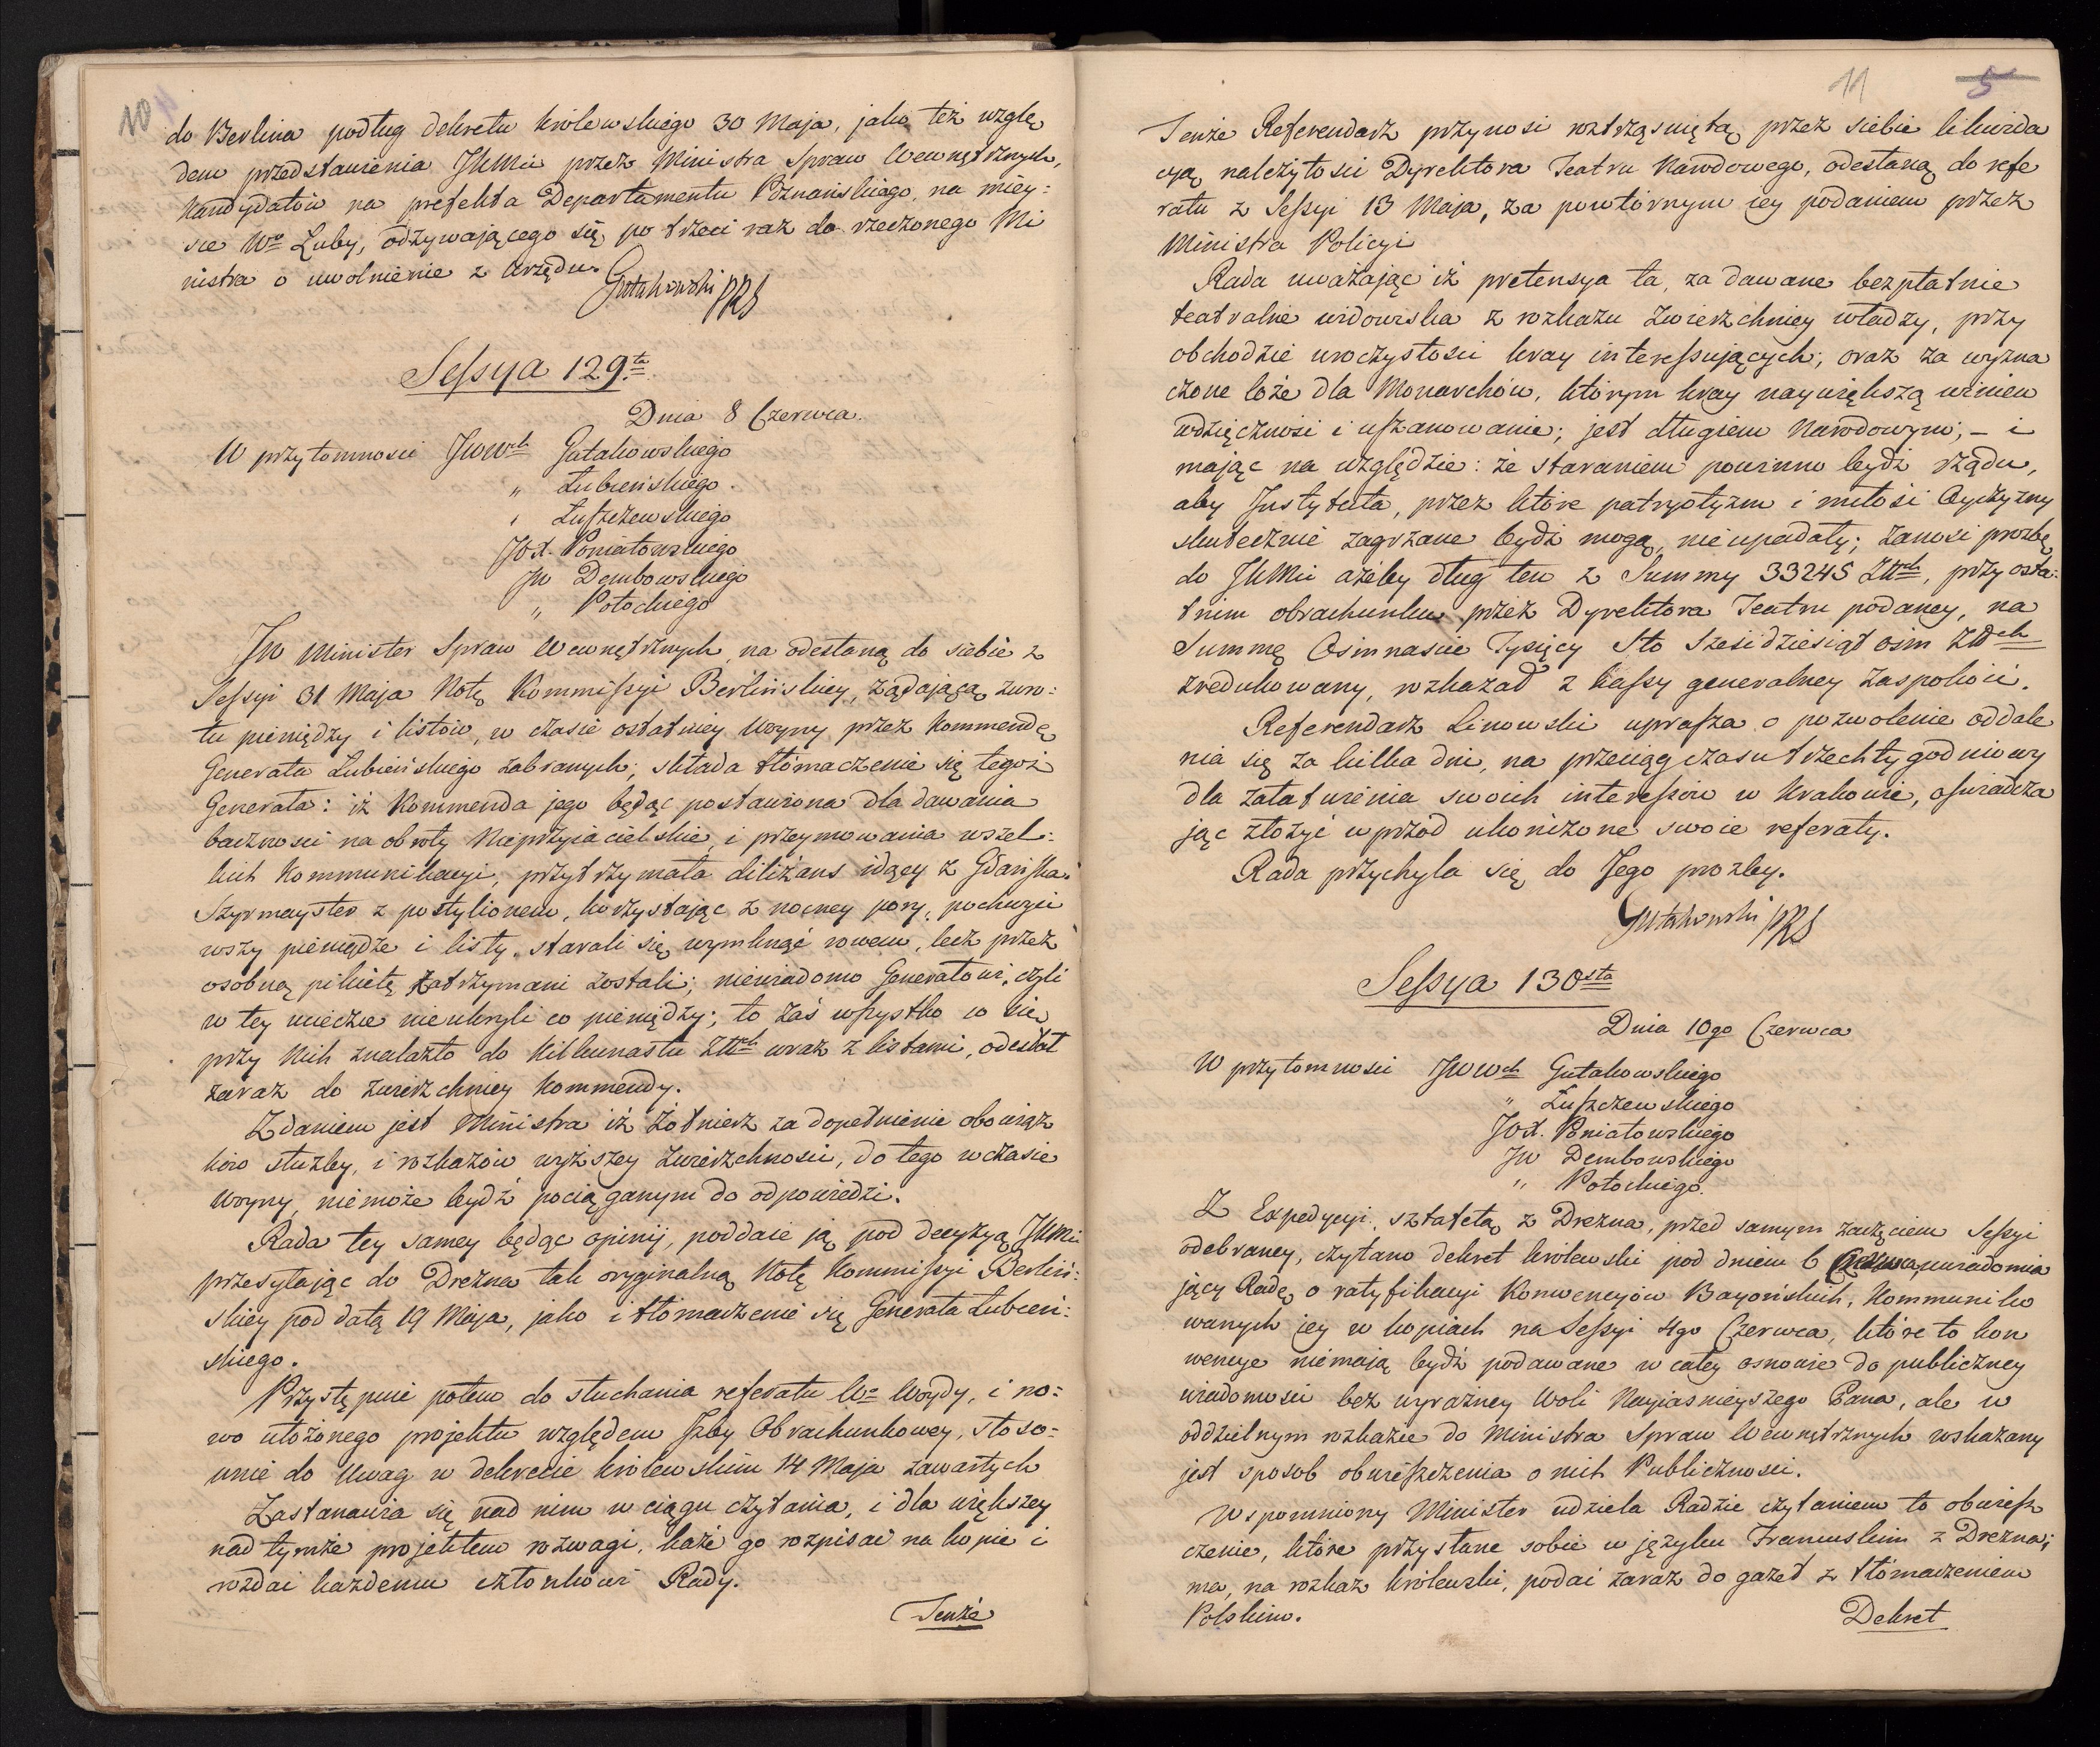 10
do Berlina podług dekretu królewskiego 30 Maja, jako też wzglę
dem przedstawienia JKMci przez Ministra Spraw Wewnętrznych,
Kandydatów na prefekta Departamentu Poznańskiego, na miey:
sce Wo Luby, odzywającego się po trzeci raz do rzeczonego Mi
nistra o uwolnienie z Urzędu.
Gutakowski PRS
Sessya 129ta
Dnia 8 Czerwca.
W przytomności JWWch Gutakowskiego
" Łubieńskiego.
" Łuszczewskiego
JOX. Poniatowskiego
JW Dembowskiego
" Potockiego
JW Minister Spraw Wewnętrznych, na odesłaną do siebie z
Sessyi 31 Maja Notę Kommissyi Berlińskiey, żądającą zwro:
tu pieniędzy i listów, w czasie ostatniey woyny przez Kommendę
Generała Łubieńskiego zabranych; składa tłómaczenie się tegoż
Generała: iż Kommenda jego będąc postawiona dla dawania
baczności na obroty Nieprzyiacielskie, i przeymowania wszel:
kich Kommunikacyi, przytrzymała diliżans idący z Gdańska.
Szyrmayster z postylionem, korzystając z nocney pory, pochwyci
wszy pieniądze i listy, starali się wymknąć rowem, lecz przez
osobną pikietę zatrzymani zostali; niewiadomo Generałowi, czyli
w tey ucieczce nieukryli co pieniędzy; to zaś wszystko co się
przy nich znalazło do kilkunastu Złłch wraz z listami, odesłał
zaraz do zwierzchniey Kommendy.
Zdaniem jest Ministra iż żołnierz za dopełnienie obowiąz
ków służby, i rozkazów wyższey zwierzchności, do tego w czasie
woyny, niemoże bydź pociąganym do odpowiedzi.
Rada tey samey będąc opinij, poddaie ją pod decyzyą JKMci
przesyłając do Drezna tak oryginalną Notę Kommissyi Berliń:
skiey pod datą 19 Maja, jako i tłómaczenie się Generała Łubień:
skiego.
Przystępuie potem do słuchania referatu Wo Woydy, i no:
wo ułożonego projektu względem Izby Obrachunkowey, stoso:
wnie do Uwag w dekrecie królewskim 14 Maja zawartych
Zastanawia się nad nim w ciągu czytania, i dla większey
nad tymże projektem rozwagi, każe go rozpisać na kopie i
rozdać każdemu członkowi Rady.
Tenże
11 5
Tenże Referendarz przynosi roztrząsniętą przez siebie likwida
cyą należytości Dyrektora Teatru Narodowego, odesłaną do refe
ratu z Sessyi 13 Maja, za powtórnym iey podaniem przez
Ministra Policyi
Rada uważając iż pretensya ta, za dawane bezpłatnie
teatralne widowiska z rozkazu Zwierzchniey władzy, przy
obchodzie uroczystości kray interessujących; oraz za wyzna
czone loże dla Monarchów, którym kray naywiększą winien
wdzięczność i uszanowanie; jest długiem Narodowym; – i
mając na względzie: że staraniem powinno bydź rządu,
aby Instytuta, przez które patryotyzm i miłość Oyczyzny
skutecznie zagrzane bydź mogą, nieupadały; zanosi prozbę
do JKMci ażeby dług ten z Summy 33245 Złłch, przy osta:
tnim obrachunku przez Dyrektora Teatru podaney, na
Summę Ośmnaście Tysięcy Sto Sześćdziesiąt ośm Złłch
zredukowany, rozkazał z kassy generalney zaspokoić.
Referendarz Linowski uprasza o pozwolenie oddale
nia się za kilka dni, na przeciąg czasu trzechtygodniowy
dla załatwienia swoich interessów w Krakowie, oświadcza
jąc złożyć wprzód ukończone swoie referaty.
Rada przychyla się do Jego prozby.
Gutakowski PRS
Sessya 130sta
Dnia 10go Czerwca
W przytomności JWWch Gutakowskiego
" Łuszczewskiego
JOX. Poniatowskiego
JW Dembowskiego
" Potockiego.
Z Expedycyi, sztafetą z Drezna, przed samym zaczęciem Sessyi
odebraney, czytano dekret królewski pod dniem 6 Czerwca, uwiadomia
jący Radę o ratyfikacyi Konwencyów Bayońskich, Kommuniko
wanych jey w kopiach na Sessyi 4go Czerwca, które to kon
wencye niemają bydź podawane w całey osnowie do publiczney
wiadomości bez wyraźney Woli Nayiaśnieyszego Pana, ale w
oddzielnym rozkazie do Ministra Spraw Wewnętrznych wskazany
jest sposob obwieszczenia o nich Publiczności.
Wspomniony Minister udziela Radzie czytaniem to obwiesz
czenie, które przysłane sobie w języku Francuskim z Drezna;
ma, na rozkaz królewski, podać zaraz do gazet z tłómaczeniem
Polskim.
Dekret